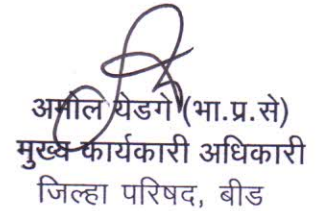 अमोल येडगे (भा.प्र.से)
मुख्य कार्यकारी अधिकारी
जिल्हा परिषद, बीड